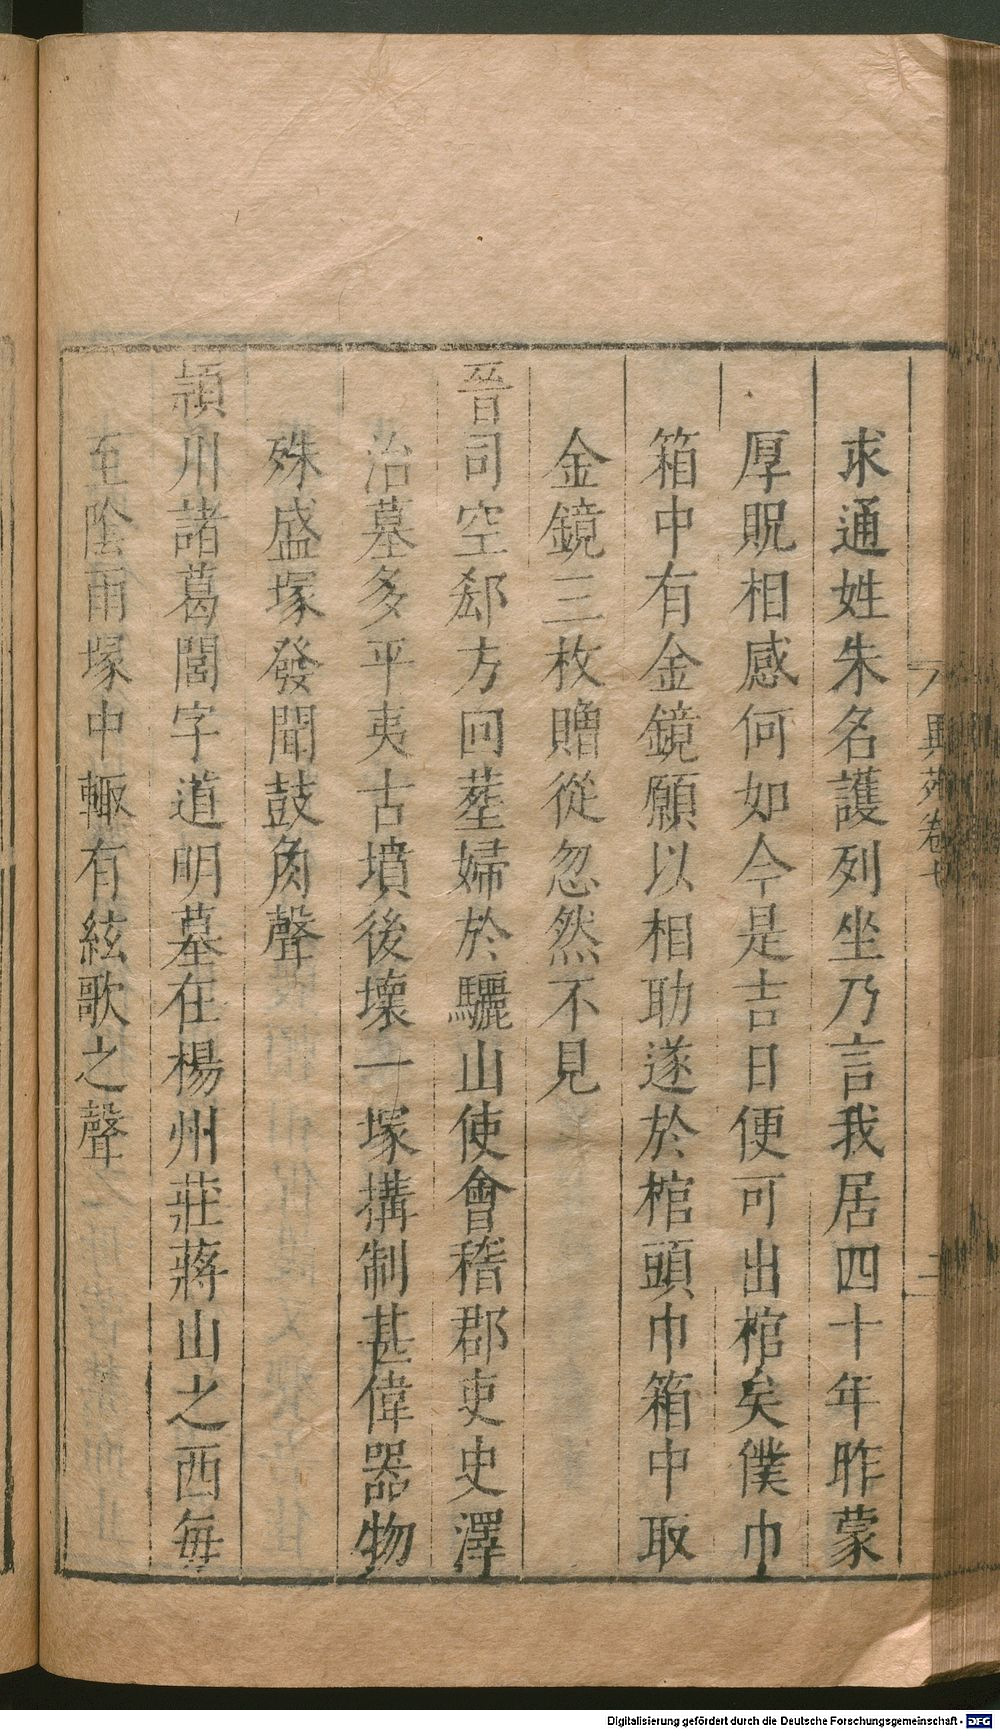 求通姓朱名護列坐乃言我居四十年昨蒙
厚貺相感何如今是吉日便可出棺矣僕巾
箱中有金鏡願以相助遂於棺頭巾箱中取
金鏡三枚贈從忽然不見
晉司空郄方回塟婦於驪山使會稽郡吏史澤
治墓多平夷古墳後壞一塚搆制甚偉器物
殊盛塚發聞鼓角聲
潁川諸葛閭字道明墓在楊州莊蔣山之西每
至陰雨塚中輙有絃歌之聲
異苑卷七
Digitalisierung gefördert durch die Deutsche Forschungsgemeinschaft - DFG